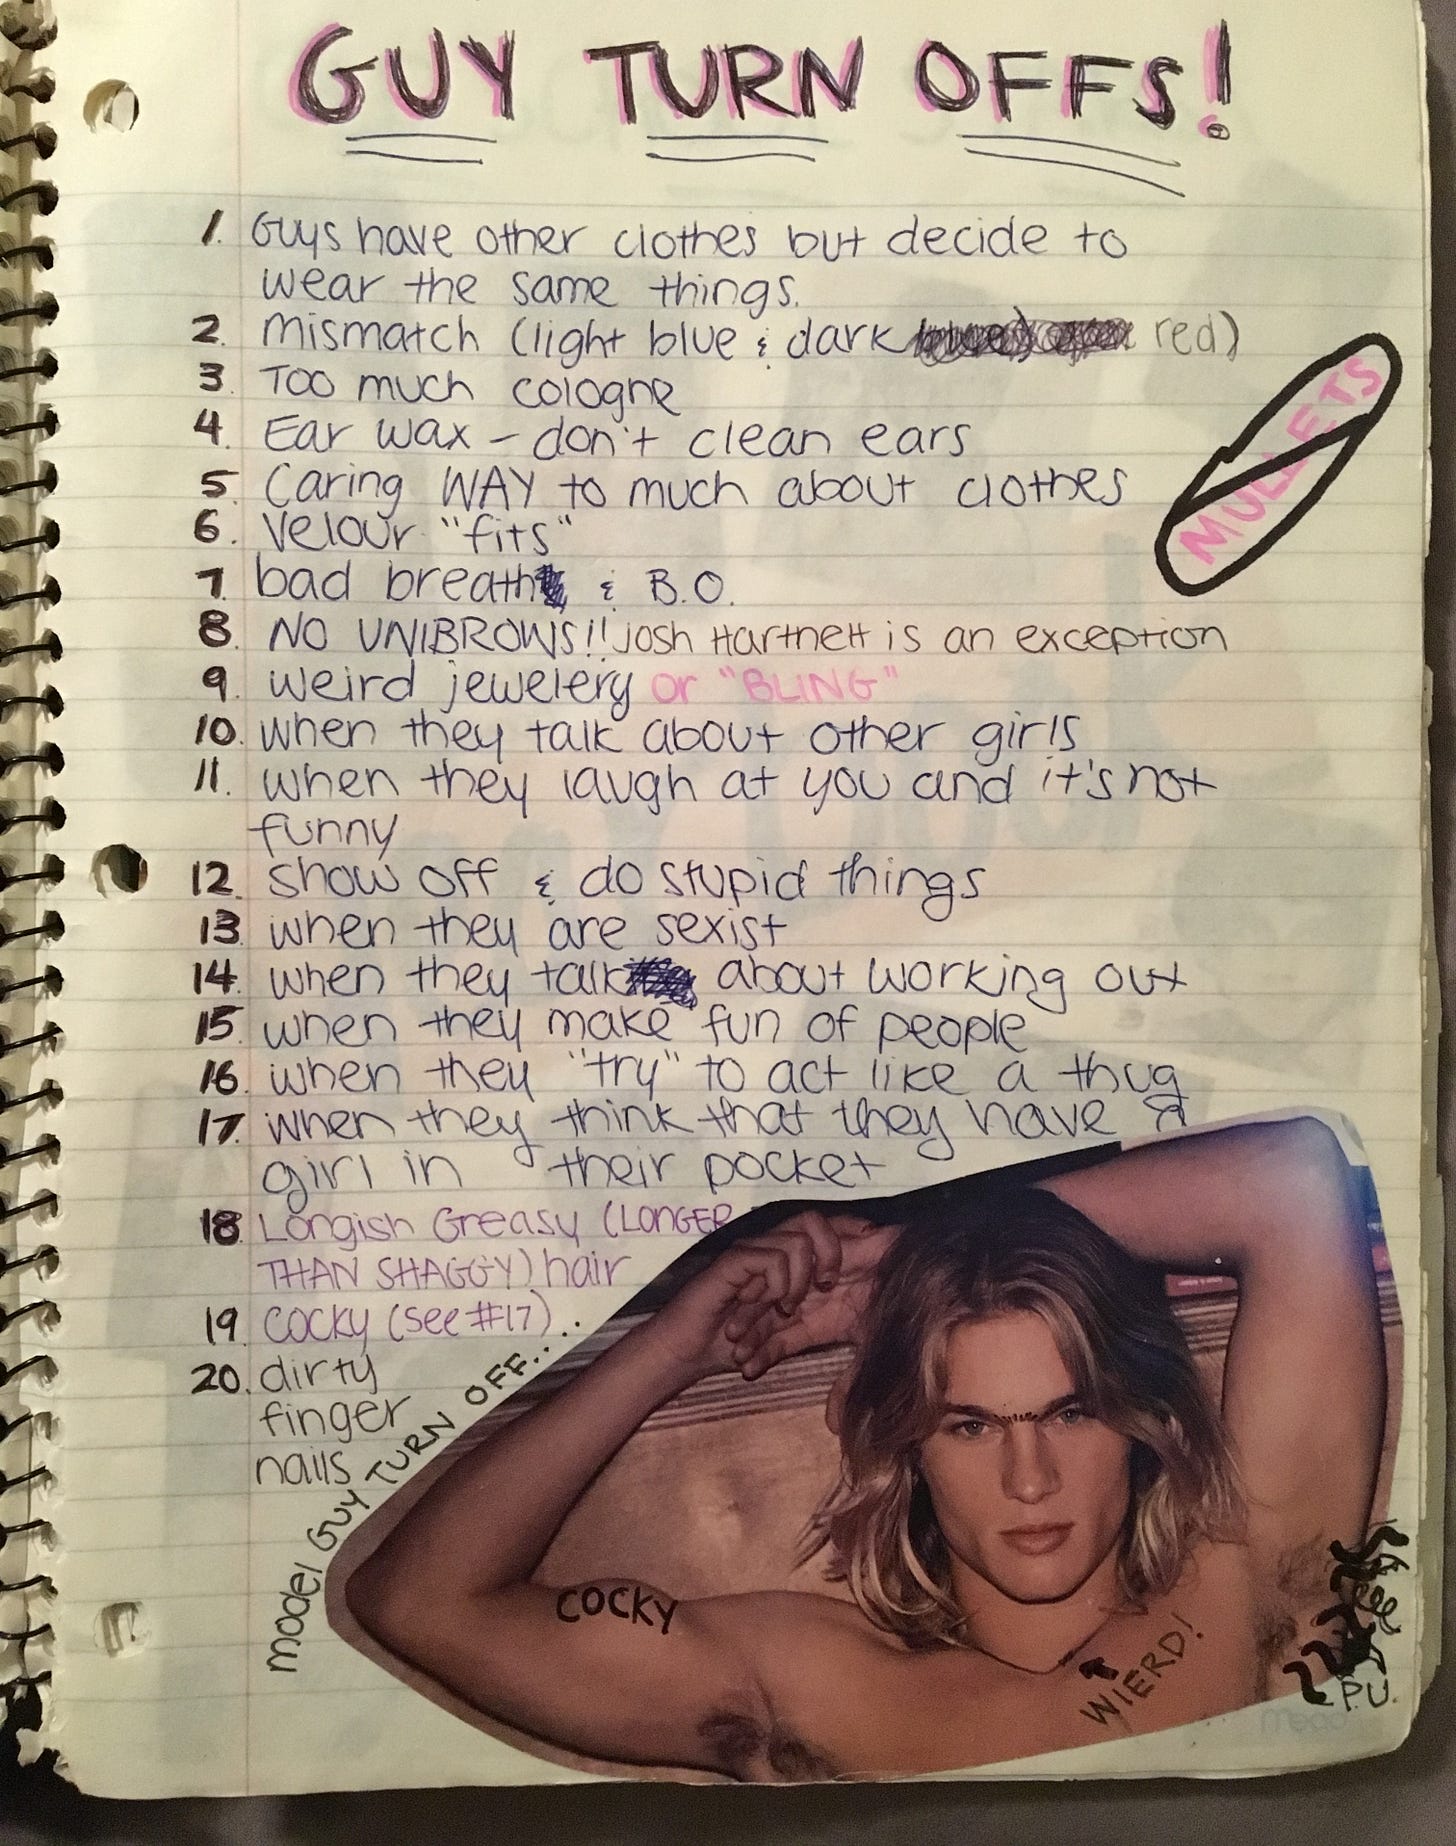 GUY TURN OFFS!
1. Guys have other clothes but decide to
wear the same things.
2. Mismatch (light blue & dark red)
3. Too much cologne
4. Ear wax – don't clean ears
5. Caring WAY to much about clothes
6. Velour "fits"
7. bad breath & B.O.
8. NO UNIBROWS!! Josh Hartnett is an exception
9. weird jewelery or "BLING"
10. when they talk about other girls
11. when they laugh at you and it's not
funny
12. show off & do stupid things
13. when they are sexist
14. when they talk about working out
15. when they make fun of people
16. when they "try" to act like a thug
17. when they think that they have a
girl in their pocket
18. Longish Greasy (LONGER
THAN SHAGGY) hair
19. cocky (see #17)...
20. dirty
finger
nails
MULLETS
model GUY TURN OFF...
COCKY
WIERD!
P.U.
Mead